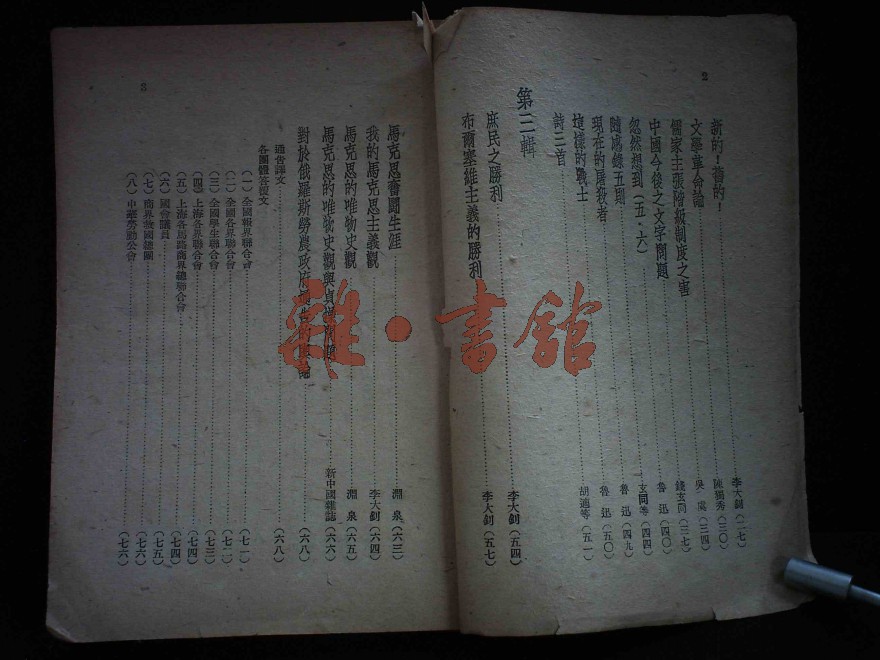 2
新的！舊的！……李大釗（二七）
文學革命論……陳獨秀（三〇）
儒家主張階級制度之害……吳虞（三四）
中國今後之文字問題……錢玄同（三七）
忽然想到（五・六）……魯迅（四〇）
隨感錄五則……玄同等（四四）
現在的屠殺者……魯迅（四九）
這樣的戰士……魯迅（五〇）
詩三首……胡適等（五一）
第二輯
庶民之勝利……李大釗（五四）
布爾塞維主義的勝利……李大釗（五七）
3
馬克思奮鬭生涯……淵泉（六三）
我的馬克思主義觀……李大釗（六四）
馬克思的唯物史觀……淵泉（六五）
馬克思的唯物史觀與貞操問題……新中國雜誌（六六）
對於俄羅斯勞農政府通告的……（六八）
通告譯文……（六八）
各團體答復文
（一）全國報界聯合會……（七一）
（二）全國各界聯合會……（七二）
（三）全國學生聯合會……（七三）
（四）上海各界聯合會……（七四）
（五）上海各馬路商界總聯合會……（七四）
（六）國會議員……（七五）
（七）商界救國總團……（七六）
（八）中華勞動公會……（七六）
雜・書館